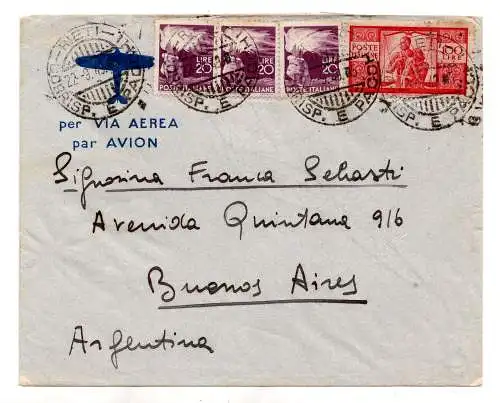 RIETI
CORRISP. E PACCHI
LIRE 20
POSTE ITALIANE
LIRE 20
POSTE ITALIANE
LIRE 20
POSTE ITALIANE
POSTE ITALIANE
100 LIRE
per VIA AEREA
par AVION
Signorina Franca Sebasti
Avenida Quintana 916
Buenos Aires
Argentina